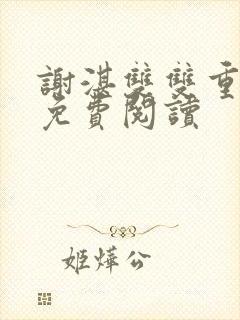 謝湛雙雙重
免費閱讀
姬燁公